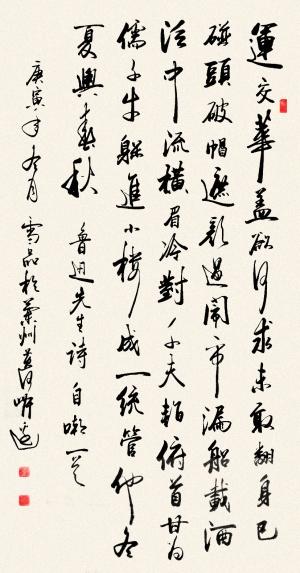 運交華盖欲何求未敢翻身已
碰頭破帽遮顔過鬧市漏船載酒
泛中流橫眉冷對千夫指俯首甘為
儒子牛躲進小樓成一統管他冬
夏與春秋 魯迅先生詩自嘲一首
庚寅年冬月 於蘭州黄河